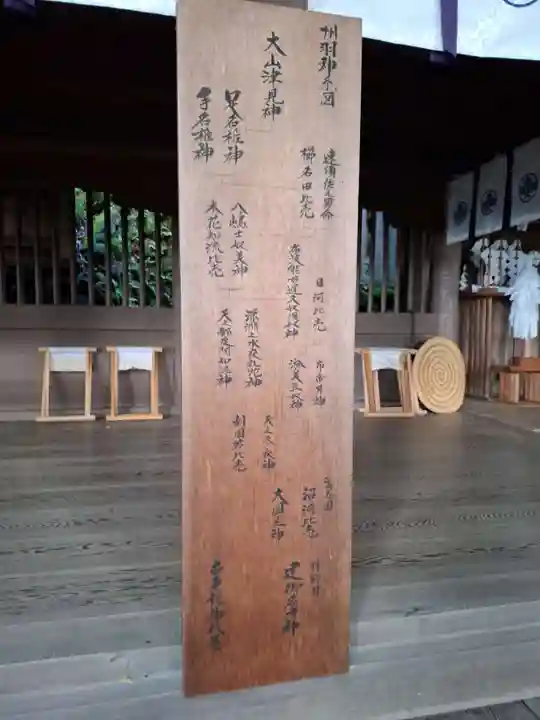 州羽神系図
大山津見神
足名椎神
手名椎神
建須佐之男命
櫛名田比売
八嶋士奴美神
木花知流比売
日河比売
布波能母遅久奴須奴神
淤美豆奴神
深淵之水夜礼花神
天之都度閇知泥神
天之冬衣神
刺国若比売
高志国
沼河比売
大国主神
建御名方神